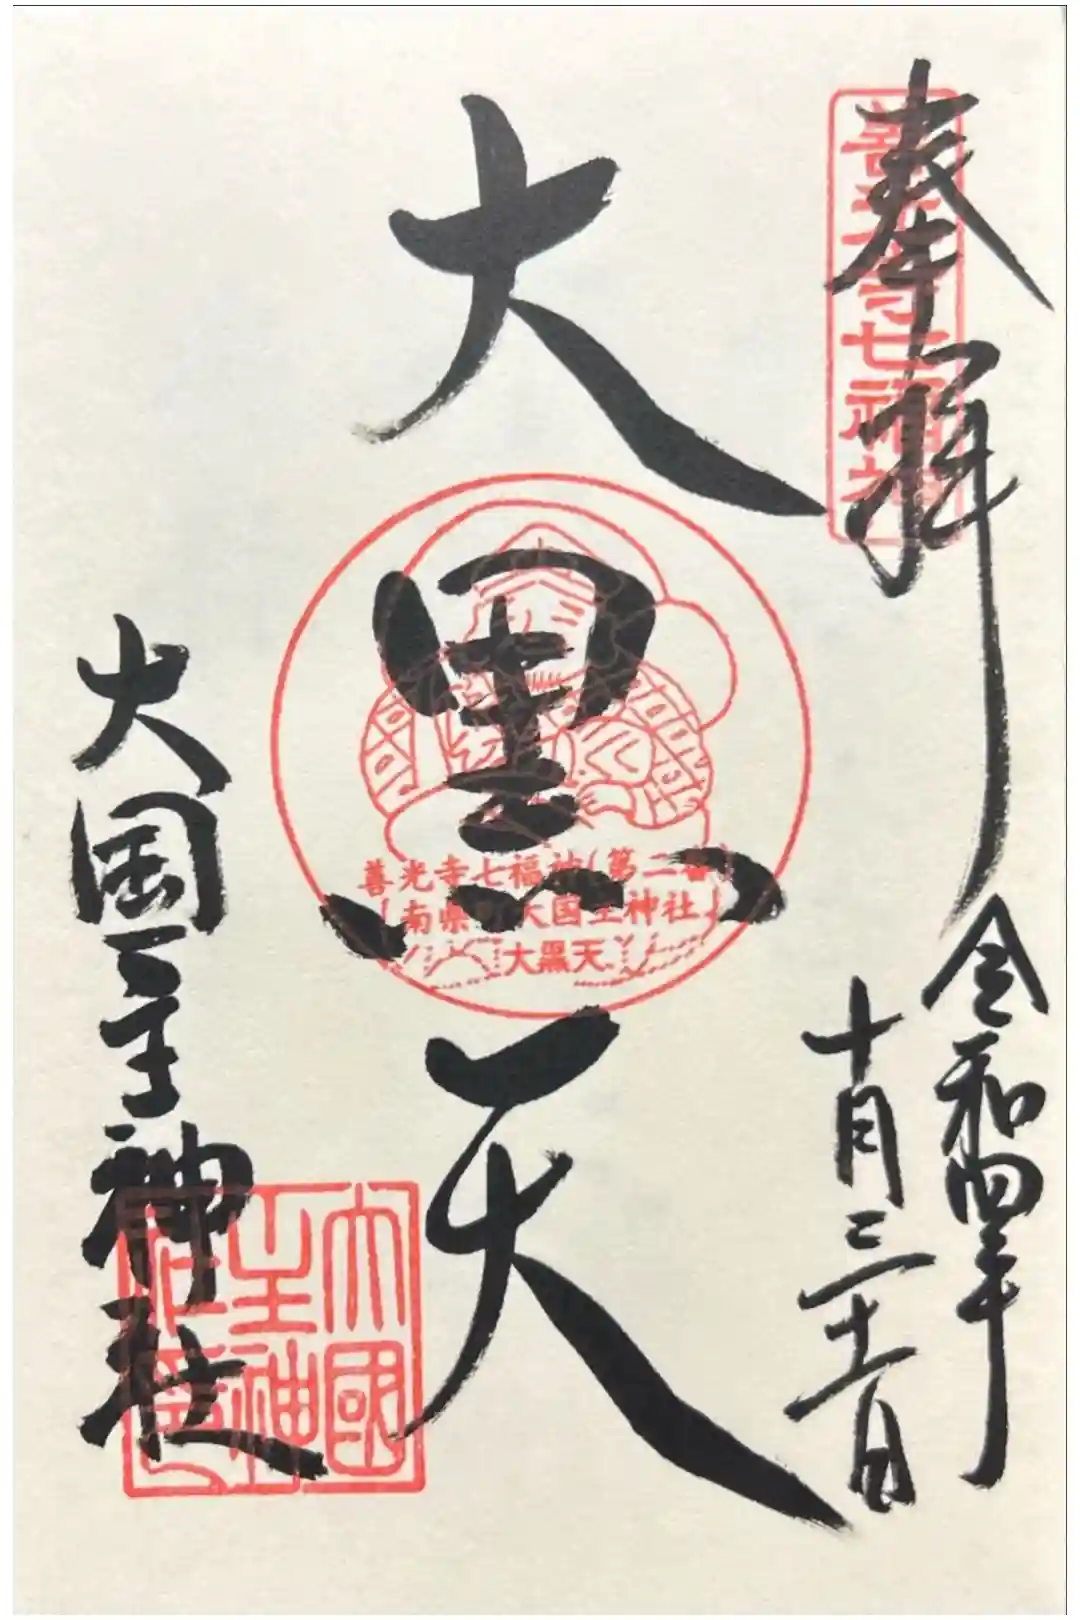 奉拝
善光寺七福神
令和四年
十月三十一日
大黒天
善光寺七福神(第二番)
南県町大国主神社
大黒天
大国主神社
大國
主神
社